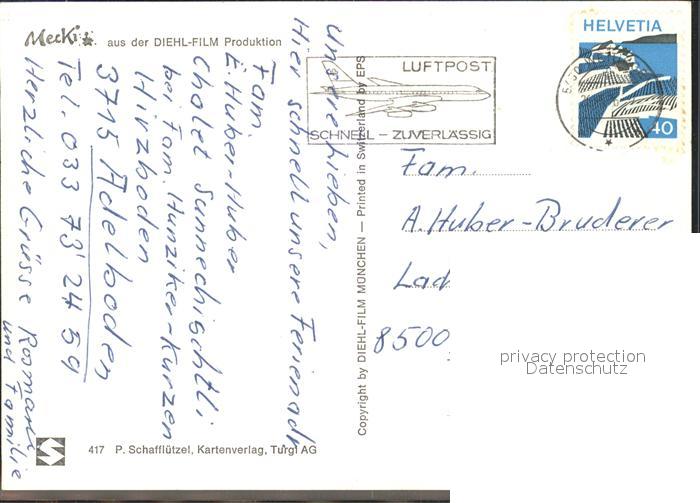 Mecki aus der DIEHL-FILM Produktion
unsere Lieben,
Hier schnell unsere Ferienadr
Fam.
E. Huber-Huber
Chalet Sunnechischtli
bei Fam. Hunziker-Kurzen
Hirzboden
3715 Adelboden
Tel. 033 73 24 59
Herzliche Grüsse
und Familie
417 P. Schafflützel, Kartenverlag, Turgi AG
Copyright by DIEHL-FILM MÜNCHEN — Printed in Switzerland by EPS
LUFTPOST
SCHNELL – ZUVERLÄSSIG
HELVETIA
40
Fam.
A. Huber-Bruderer
Lad
8500
privacy protection
Datenschutz